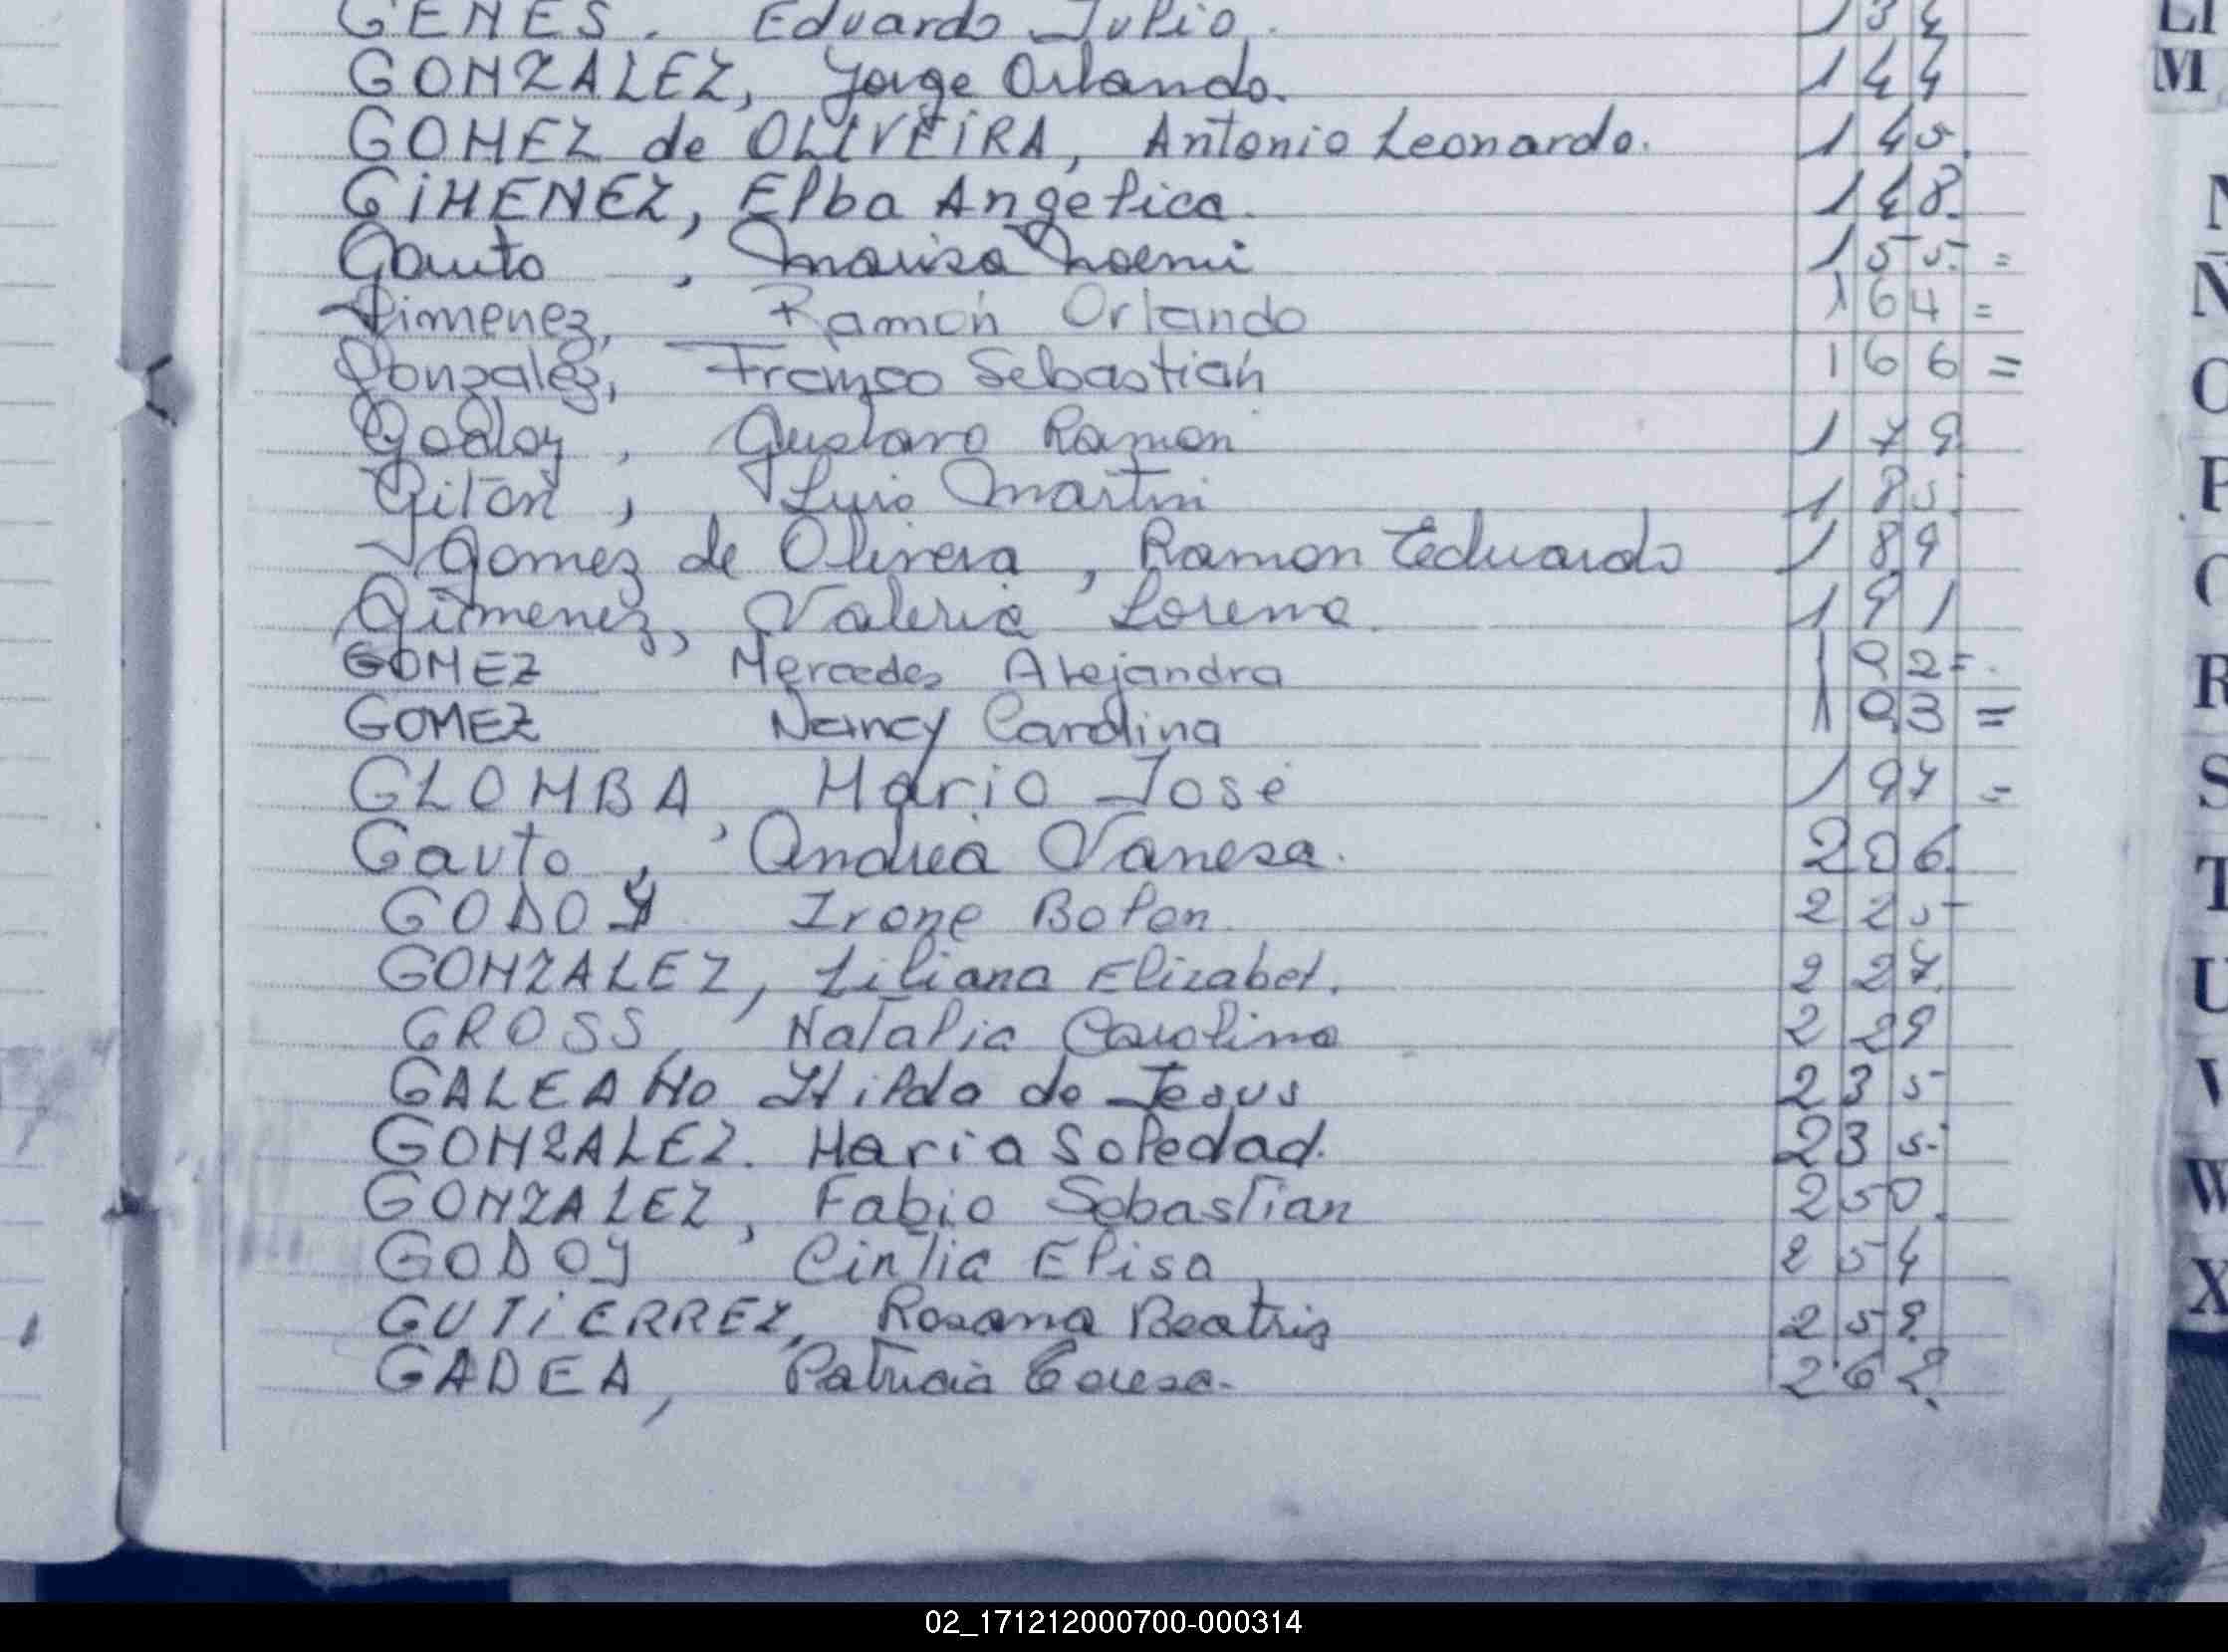 GENES. Eduardo Julio. 134
GONZALEZ, Jorge Orlando. 144
GOMEZ de OLIVEIRA, Antonio Leonardo. 145.
GIMENEZ, Elba Angelica. 148.
Gauto , Marisa Noemi 155. =
Gimenez, Ramón Orlando 164 =
Gonzalez, Franco Sebastián 166 =
Godoy , Gustavo Ramon 179.
Giton , Luis Martin 185.
Gomez de Olivera , Ramon Eduardo 189
Gimenez, Valeria Lorena. 191
GOMEZ Mercedes Alejandra 192=.
GOMEZ Nancy Carolina 193 =
GLOMBA, Mario José 197 =
Gauto , Andrea Vanesa. 206.
GODOY Irene Belen. 225
GONZALEZ, Liliana Elizabet. 227.
GROSS, Natalia Carolina 229
GALEANo Hilda de Jesus 235
GONZALEZ. Maria Soledad. 235.
GONZALEZ, Fabio Sebastian 250.
GODOY Cintia Elisa 254
GUTiERREZ, Rosana Beatriz 259.
GADEA, Patricia Teresa. 262.
LL
M
N
Ñ
O
P
Q
R
S
T
U
V
W
X
02_171212000700-000314